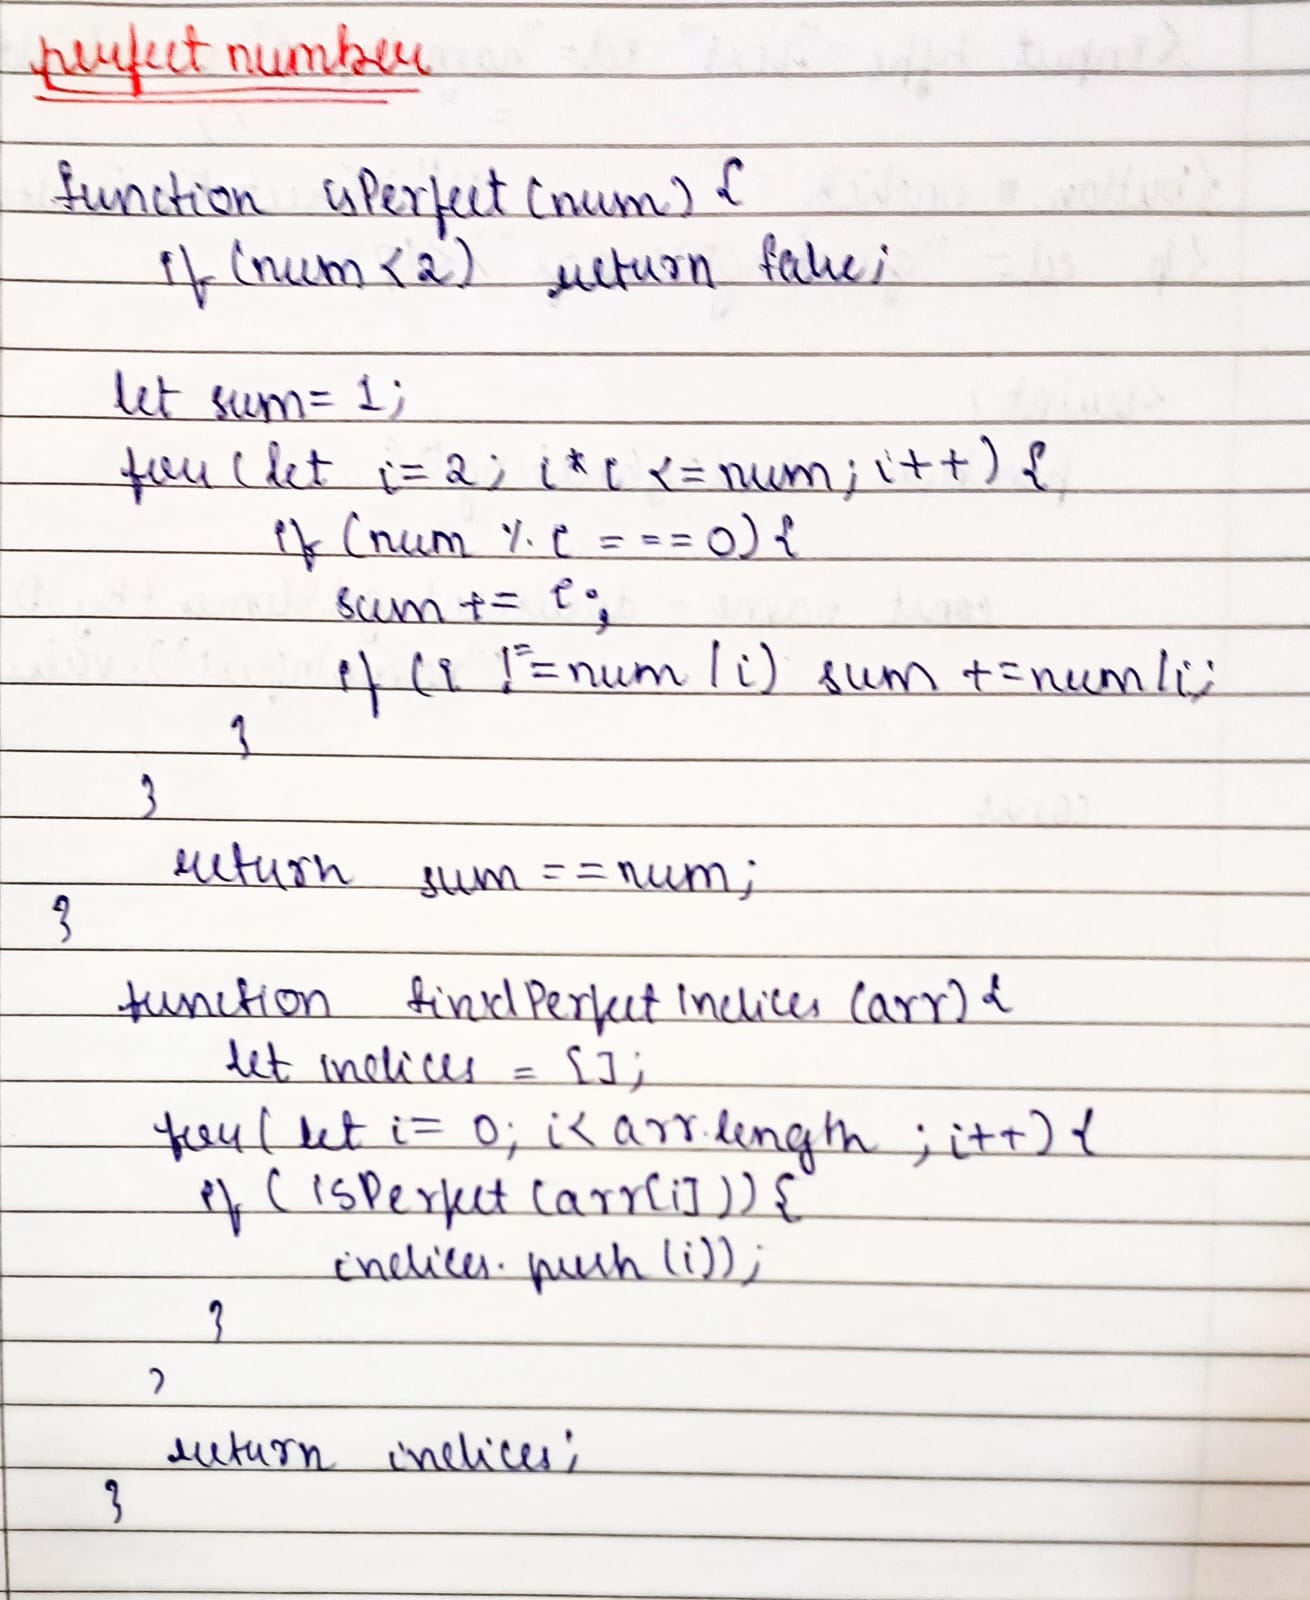 perfect number
function isPerfect (num) {
if (num < 2) return false;
let sum = 1;
for (let i = 2; i * i <= num; i++) {
if (num % i = == 0) {
sum += i;
if (i != = num / i) sum += num / i;
}
}
return sum == num;
}
function findPerfect Indices (arr) {
let indices = [];
for (let i = 0; i < arr.length ; i++) {
if ( isPerfect (arr[i])) {
indices. push (i));
}
}
return indices;
}